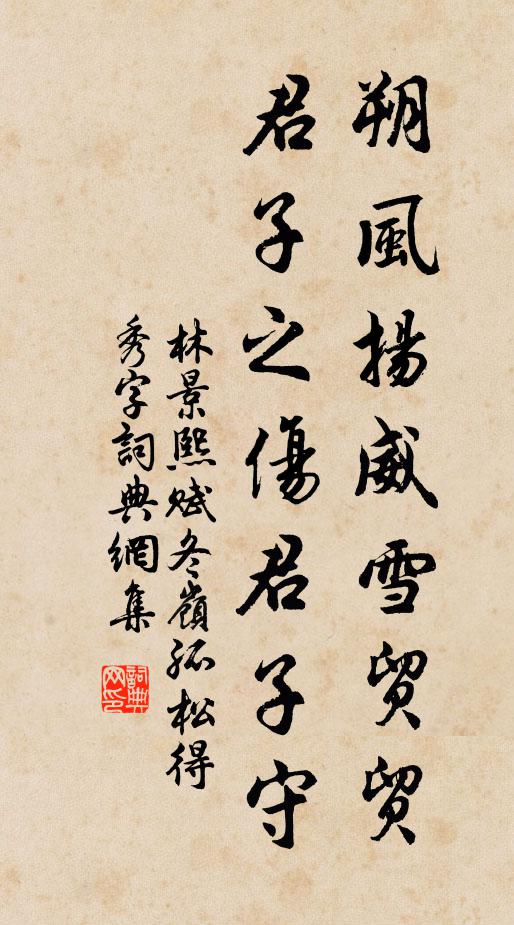 朔風揚威雪貿貿
君子之傷君子守
林景熙賦冬嶺孤松得
秀字詞典網集
詞典网印